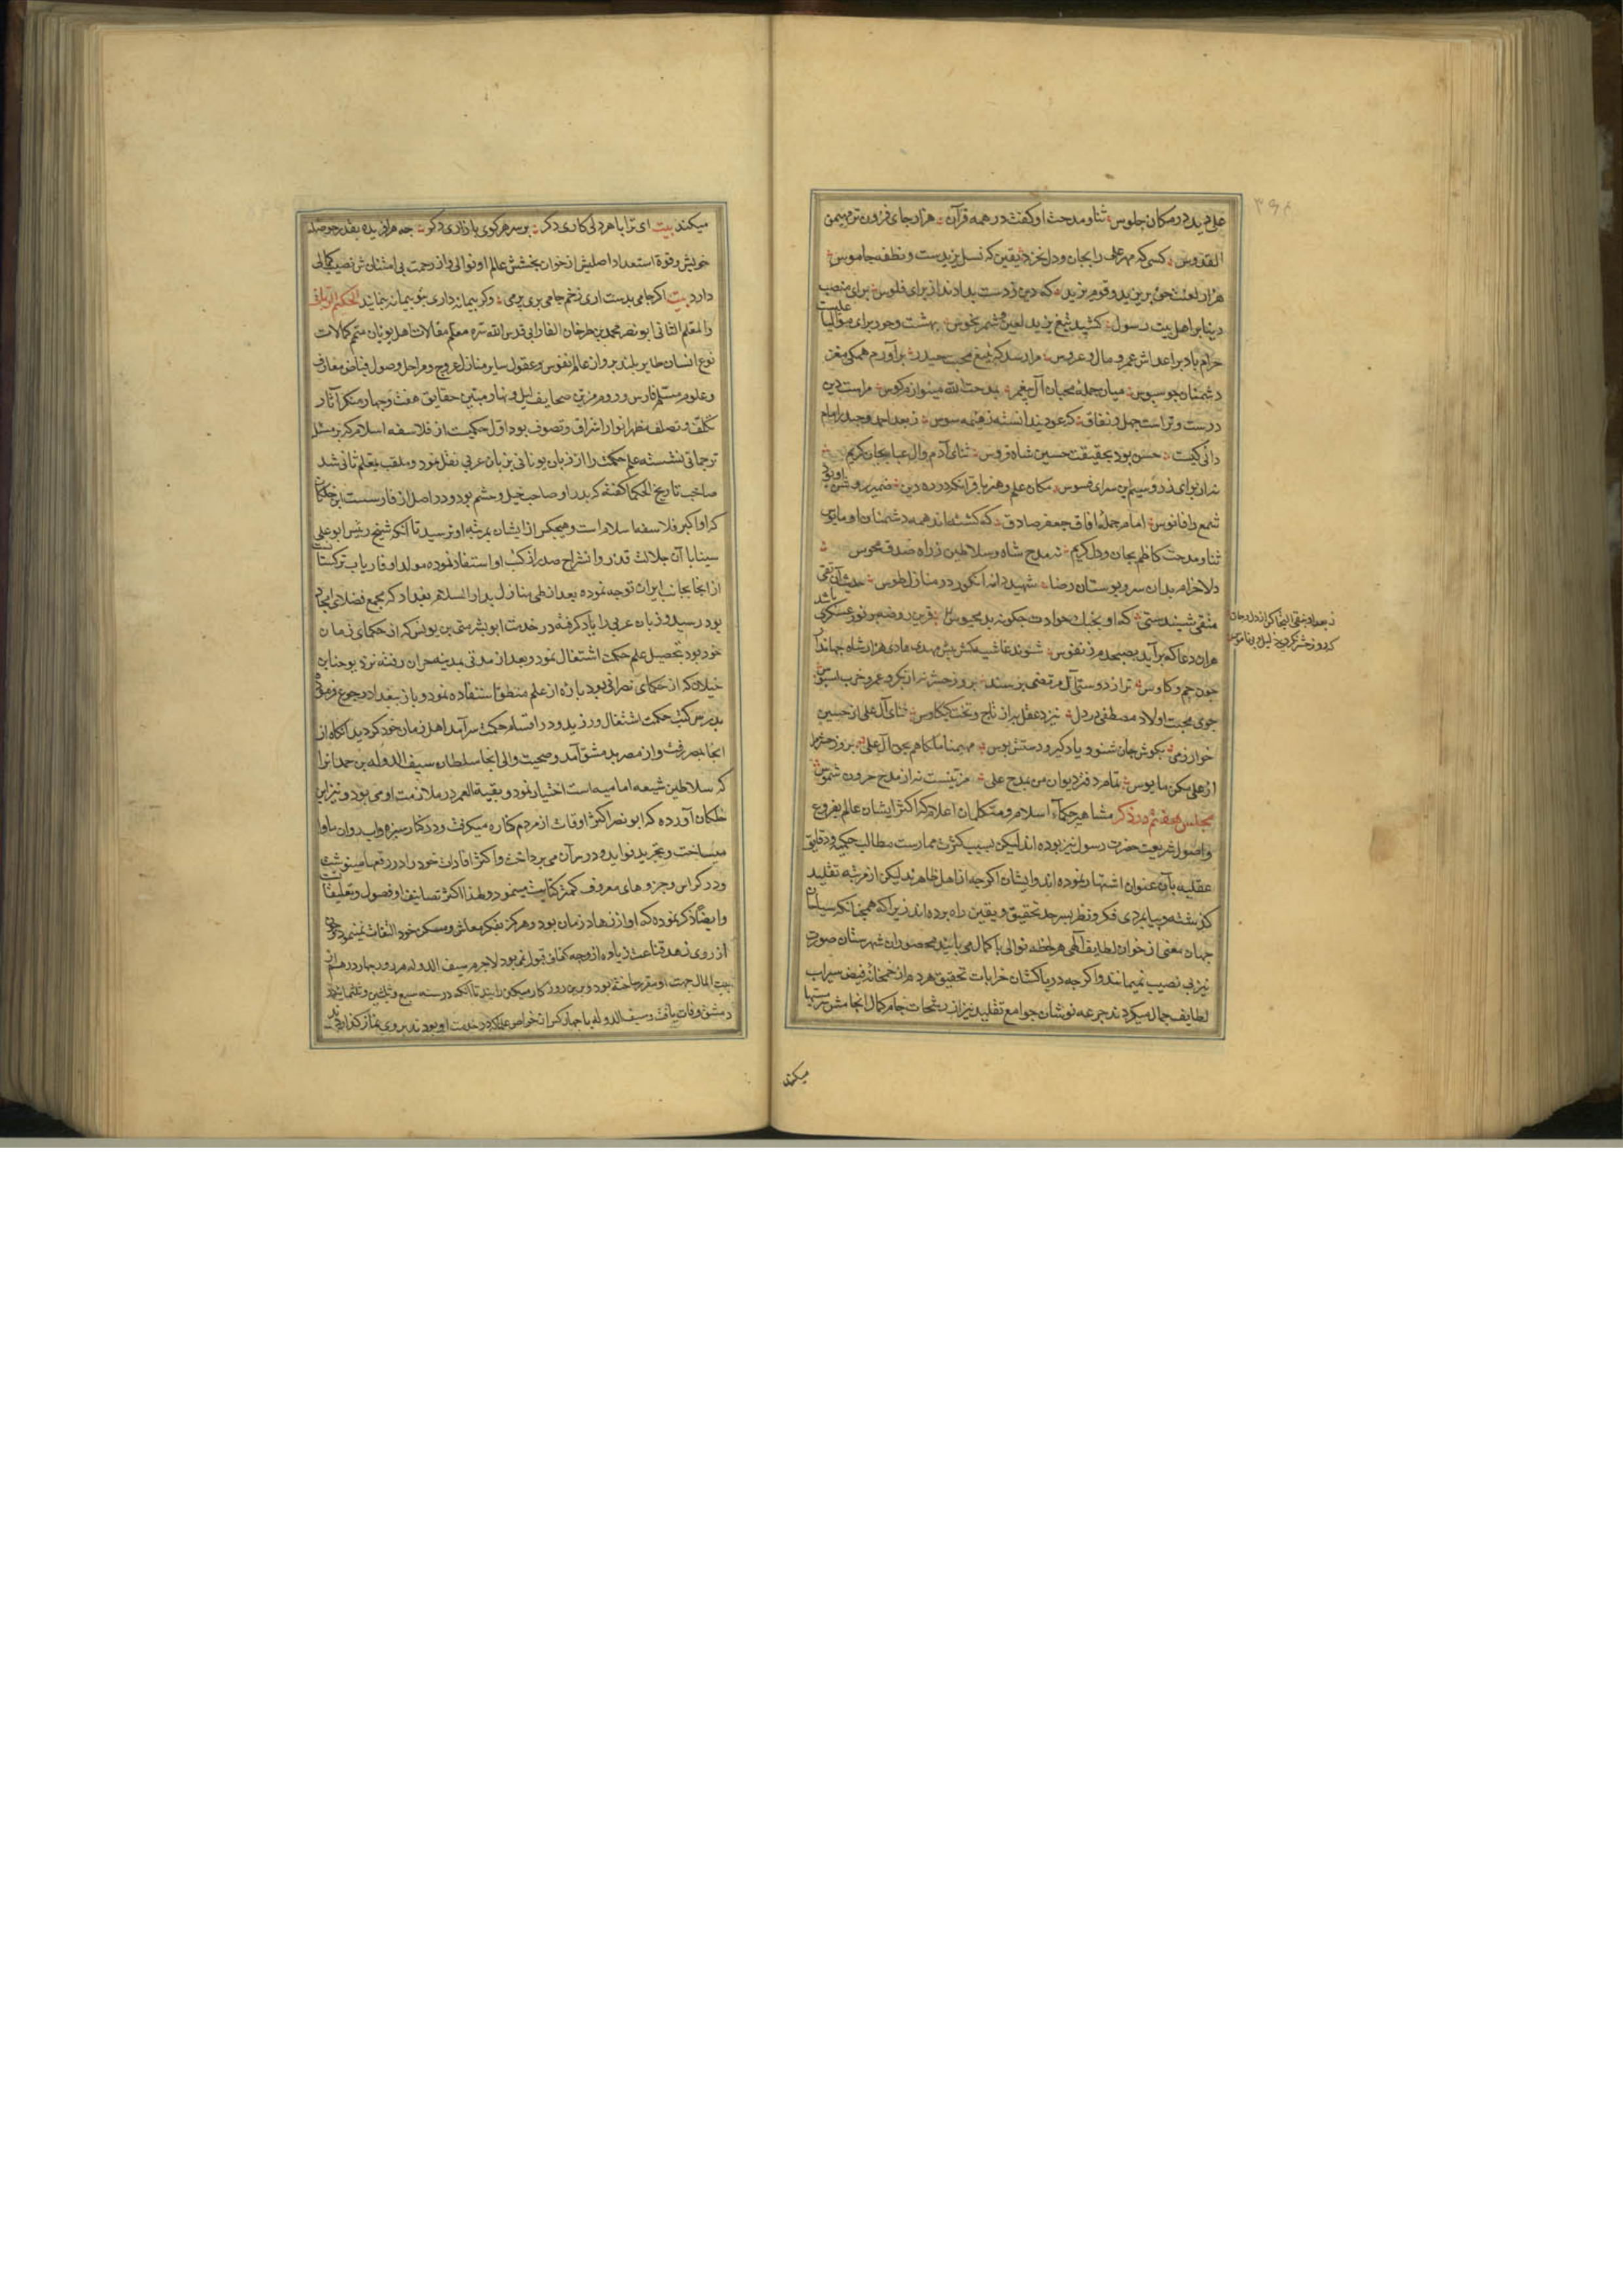 علی دید در مکان جلوس ثنا و مدحت او گفت در همه قرآن هزار جای فزون تر مهیمن
القدوس کسی که مهر علی را بجان و دل نخرد یقین که نسل یزیدست و نطفه جاموس
هزار لعنت حق بر یزید و قوم یزید که دین ز دست بدادند از برای فلوس برای منصب
دنیا بر اهل بیت رسول کشید تیغ یزید لعین و شمر نحوس بهشت و حور برای موالیان علیست
حرام باد بر اعداش عمر و مال و عروس مرا رسد که بتیغ محب حیدر برآورم همگی مغز
دشمنان چو سبوس میان جمله محبان آل پیغمبر بمدحت الله مینوازم کوس مراست دین
درست و تراست جهل و نفاق که عود بید ندانسته ز هیمه سوس ز بعد احمد و حیدر امام
دانی کیست حسن بود بحقیقت حسین شاه فروس ثنای آدم و آل عبا بجان گویم
نه از برای زر و سیم این سرای فسوس مکان علم و هنر باقر آنکه در ره دین ضمیر روشن او بود
شمع را فانوس امام جمله آفاق جعفر صادق که گشته‌اند همه دشمنان او مأیوس
ثنا و مدحت کاظم بجان و دل گویم نه مدح شاه و سلاطین ز راه صدق مجوس
دلا خرام بدان سرو بوستان رضا شهید دانه انگور در منازل طوس حدیث آن تقی
متقی شنیدستی که او بجنگ حوادث چگونه بد محبوس قرین روضه پر نور عسکری باشد
هر آن دعا که برآید بصبحدم ز نفوس شوند غاشیه کش پیش مهدی هادی هزار شاه جهاندار
چون جم و کاوس ترا ز دوستی آل مرتضی پرسند بروز حشر نه از بکر و عمرو حرب بسوس
جوی محبت اولاد مصطفی در دل بنزد عقل به از تاج و تخت کیکاوس ثنای آل علی از حسین
خوارزمی بگوش جان شنو و یاد گیر و دستش بوس مهیمنا ملکا هم بحق آل علی بروز حشر مرا
از علی مکن مأیوس تمام دفتر دیوان من بمدح علی مزینست نه از مدح حروره شموس
مجلس هفتم در ذکر مشاهیر حکماء اسلام و متکلمان اعلام که اکثر ایشان عالم بفروع
و اصول شریعت حضرت رسول نیز بوده‌اند لیکن بسبب کثرت ممارست مطالب حکمیه و دقایق
عقلیه بآن عنوان اشتهار نموده‌اند و ایشان اگرچه از اهل ظاهرند لیکن از مرتبه تقلید
گذشته و بپایمردی فکر و نظر بسرحد تحقیق و یقین راه برده‌اند زیرا که همچنانکه سیاحان
جهان معنی از خوان لطایف الهی هر لحظه نوالی با کمال می‌یابند محصوران شهرستان صورت
نیز بی نصیب نمیمانند و اگرچه دریاکشان خرابات تحقیق هر دم از خمخانه فیض سیراب
لطایف جمال میگردند جرعه نوشان جوامع تقلید نیز از رشحات جام کمال آنجا مست
میکنند
میکنند بیت ای ترا با هر دلی کاری دگر بر سر هر کوی بازاری دگر چه هر آفریده بقدر حوصله
خویش و قوة استعداد اصلیش از خوان بخشش عالم او نوالی و از رحمت بی امتنانش نصیب کمالی
دارد بیت اگر جامی بدست آری زخم جامی بری پر می وگر پیمانه داری بتو پیمانه بنمایند الحکیم
والمعلم الثانی ابو نصر محمد بن طرخان الفارابی قدس الله سره معلم مقالات اهل یونان متمم کمالات
نوع انسان طایر بلند پرواز عالم نفوس و عقول سایر منازل عروج و مراحل وصول فیاض معارف
و علوم مستلم فارس و روم مزین صحایف لیل و نهار مبین حقایق هفت و چهار منکر آثار
تکلف و تصلف مظهر انوار اشراق و تصوف بود اول حکیمیست از فلاسفه اسلام که بر مسند
ترجمانی نشسته علم حکمت را از زبان یونانی بزبان عربی نقل نمود و ملقب بمعلم ثانی شد
صاحب تاریخ الحکما گفته که پدر او صاحب خیل و حشم بود و در اصل از فارسست ابن خلکان گفته
که او اکبر فلاسفه اسلام است و هیچکس از ایشان بمرتبه او نرسید تا آنکه شیخ رئیس ابو علی
سینا با آن جلالت قدر و انشراح صدر از کتب او استفاد نموده مولد او فاریاب ترکستانست
از آنجا بجانب ایران توجه نموده بعد از طی منازل بدارالسلام بغداد که مجمع فضلای آنجا
بود رسید و زبان عربی را یاد گرفته در خدمت ابو بشر متی بن یونس که از حکمای زمان
خود بود تحصیل علم حکمت اشتغال نمود و بعد از مدتی بمدینه حران رفته نزد یوحنا بن
خیلان که از حکمای نصرانی بود پاره از علم منطق استفاده نمود و باز ببغداد رجوع فرموده
بدرس کتب حکمت اشتغال ورزید و در اقسام حکمت سرآمد اهل زمان خود گردید آنگاه از
آنجا بمصر رفت و از مصر بدمشق آمد و صحبت والی آنجا سلطان سیف الدوله بن حمدان را
که سلاطین شیعه امامیه است اختیار نمود و بقیة العمر در ملازمت او می بود و نیز ابن
خلکان آورده که ابو نصر اکثر اوقات از مردم کناره میگرفت و در کنار سبزه و آب روان مأوا
میساخت و بتجرید فواید و درس آن می‌پرداخت و اکثر افادات خود را در رقعها مینوشت
و در کراس و جزوهای معروف کمتر کتابت مینمود و لهذا اکثر تصانیف او فصول و تعلیقاتست
و ایضا ذکر نموده که او از زهاد زمان بود و هرگز بفکر معاش و مسکن خود التفات نمینمود و چون
از روی زهد و قناعت زیاده از وجه کفاف قبول نمی‌نمود لاجرم سیف الدوله هر روز چهار درهم از
بیت المال جهت او مقرر ساخته بود و برین روزگار میگذرانید تا آنکه در سنه سبع و ثلثین و ثلثمایه در
دمشق وفات یافت و سیف الدوله با چهار کس از خواص علما که در خدمت او بودند بر وی نماز گذاردند